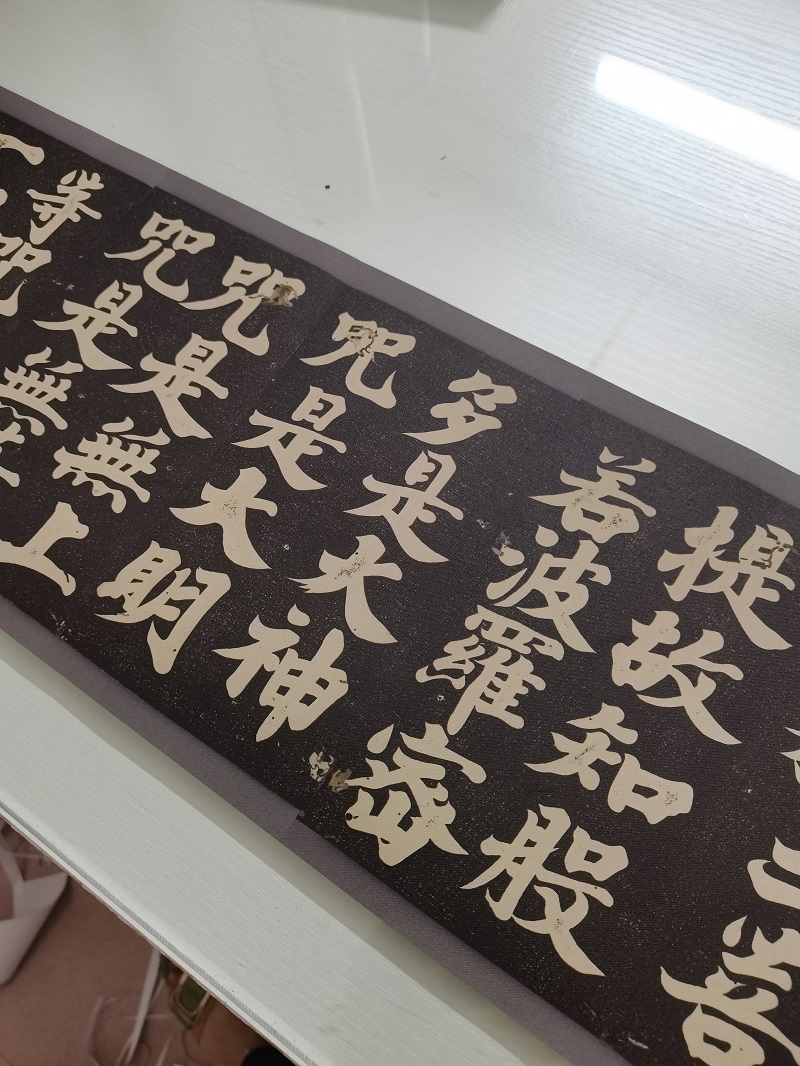 三菩
提故知般
若波羅蜜
多是大神
咒是大明
咒是無上
咒是無等
等咒
一